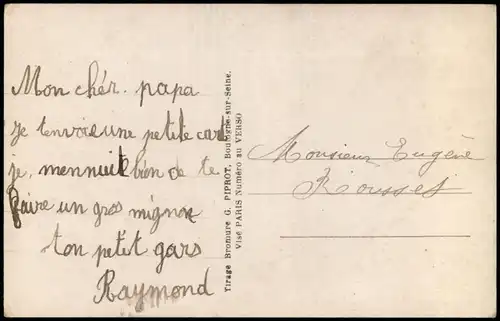 Mon chér. papa
je tenvoie une petite cart
je, mennuit bien de te
faire un gros mignon
ton petit gars
Raymond
Tirage Bromure G. PIPROT, Boulogne-sur-Seine.
Visé PARIS Numéro au VERSO
Monsieur Eugène
Rousset